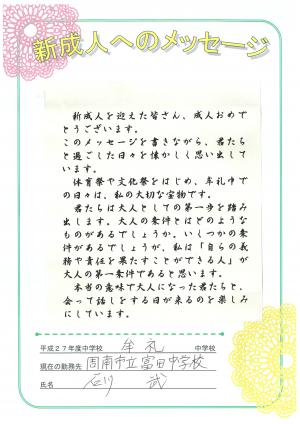 新成人へのメッセージ
新成人を迎えた皆さん、成人おめで
とうございます。
このメッセージを書きながら、君たち
と過ごした日々を懐かしく思い出して
います。
体育祭や文化祭をはじめ、牟礼中で
の日々は、私の大切な宝物です。
君たちは大人としての第一歩を踏み
出します。大人の条件とはどのような
ものがあるでしょうか。いくつかの条
件があるでしょうが、私は「自らの義
務や責任を果たすことができる人」が
大人の第一条件であると思います。
本当の意味で大人になった君たちと、
会って話しをする日が来るのを楽しみ
にしています。
平成27年度中学校 牟礼 中学校
現在の勤務先 周南市立富田中学校
氏名 石川 武